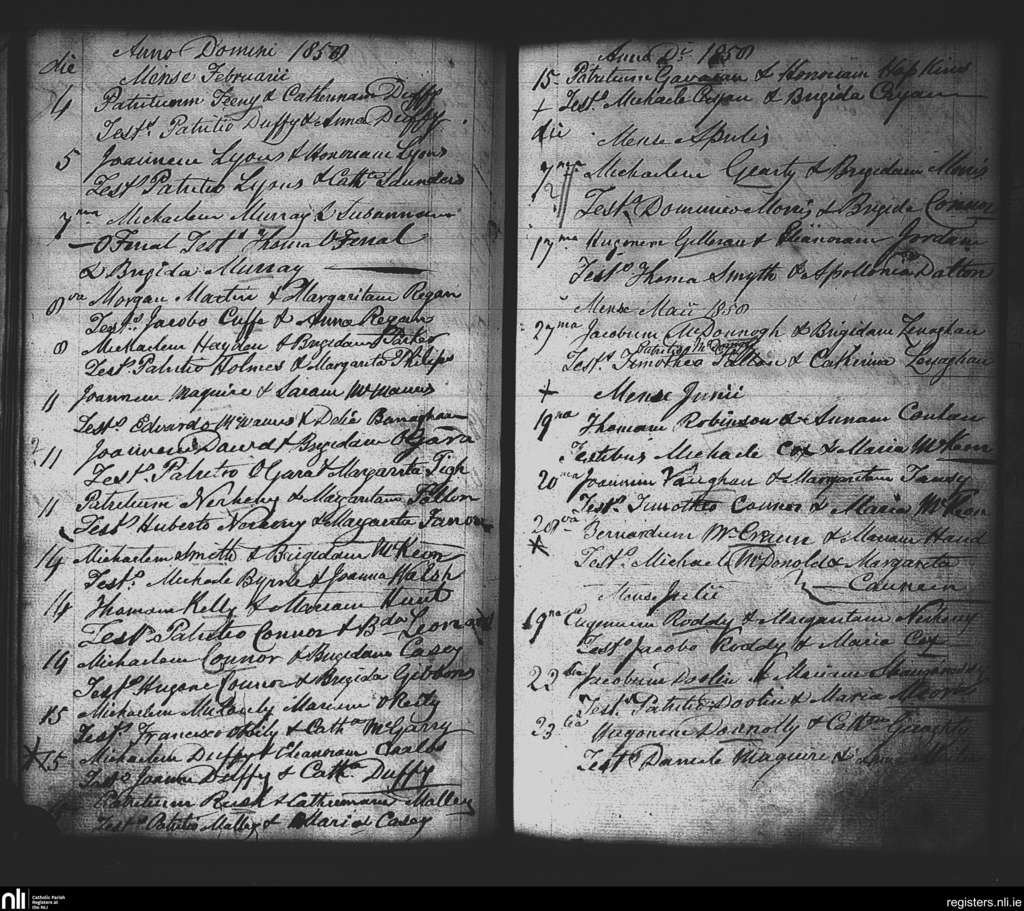 Anno Domini 1858
die
Mense Februarii
4 Patritium Feeny & Catherinam Duffy
Test.s Patritio Duffy & Anna Duffy
5 Joannem Lyons & Honoriam Lyons
Test.s Patritio Lyons & Cath.a Saunders
7ma Michaelem Murray & Susannam
O Feral Test.s Thoma O Feral
& Brigida Murray
8va Morgan Martin & Margaritam Regan
Test.s Jacobo Cuffe & Anna Regan
8 Michaelem Hayden & Brigidam Parker
Test.s Patritio Holmes & Margarita Philips
11 Joannem Maguire & Saram McManus
Test.s Edvardo McManus & Delia
11 Joannem David & Brigidam O Gara
Test.s Patritio O Gara & Margarita Tigh
11 Patritium Nerheny & Margaritam Fallon
Test.s Huberto Nerheny & Margarita
14 Michaelem Smith & Brigidam McKeon
Test.s Michaele Byrne & Joanna Walsh
14 Thomam Kelly & Mariam Hunt
Test.s Patritio Connor & Bda Leonard
14 Michaelem Connor & Brigidam Casey
Test.s Hugone Connor & Brigida Gibbons
15 Michaelem Mariam O Reily
Test.s Francisco & Cath.a McGarry
15 Michaelem Duffy & Eleanoram
Test.s Joanne Duffy & Cath.a Duffy
Patritium Rush & Catherinam Malley
Test.s Patritio Malley & Maria Casey
Anno D.i 1858
15 Patritium Gavagan & Honoriam Hopkins
+ Test.s Michaele Cryan & Brigida Cryan
die
Mense Aprilis
7ma Michaelem Gearty & Brigidam Morris
12
Test.s Dominico Morris & Brigida
17ma Hugonem & Eleanoram Jordan
Test.s Thoma Smyth & Apollonia Dalton
Mense Maii 1858
27ma Jacobum McDonnogh & Brigidam Lenaghan
Test.s Timotheo & Catherina Lenaghan
+ Mense Junii
19na Thomam Robinson & Annam Conlan
Testibus Michaele Cox & Maria McKeon
20ma Joannem Vaughan & Margaritam Tansy
Test.s Timotheo Connor & Maria McKeon
28va Bernardum & Mariam Hand
Test.s Michaele McDonold & Margarita
Mense Julii
19na Eugenium Roddy & Margaritam Nerheny
Test.s Jacobo Roddy & Maria Cox
22da Jacobum Doolin & Mariam
Test.s Patritio Doolin & Maria
23tia Hugonem Donnolly & Cath.am Geraghty
Test.s Daniele Maguire &
nli
Catholic Parish
Registers at
the NLI
registers.nli.ie